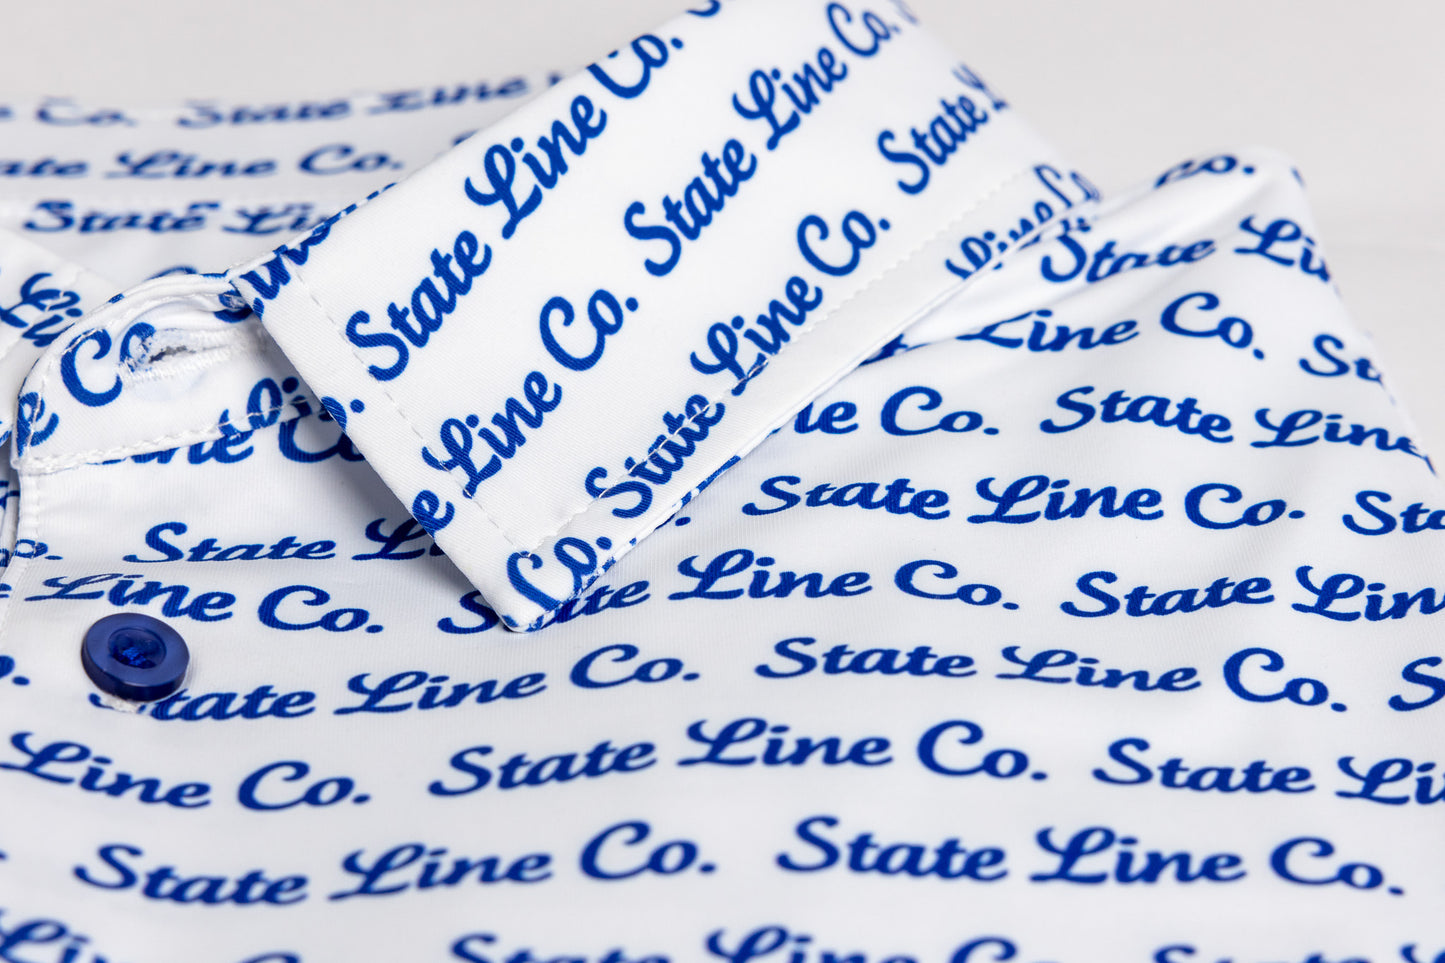 Co. State Line
State Line Co.
State Line
State Line Co.
State Line Co.
State
Line Co.
State Line Co.
Line Co.
Co.
Line Co.
State Line
Line Co. State Line
State Line Co. State
State Line
Line Co. State Line
Line Co.
State Line Co. State Line Co.
Line Co. State Line Co. State
State Line Co. State Line Co.
State Line State